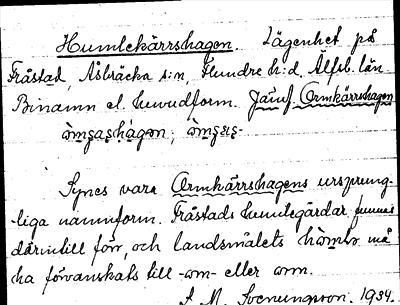 Humlekärrshagen. Lägenhet på
Fråstad, Åsbräcka s:n, Flundre h:d, Älfsb. län
Binamn el. huvudform. Jämf. Ormkärrshagen
Synes vara Ormkärrshagens ursprung-
liga namnform. Fråstads humlegårdar finnas
därintill förr, och landsmålets må
ha förvanskats till -om- eller orm.
S. M. Svenungsson. 1934.